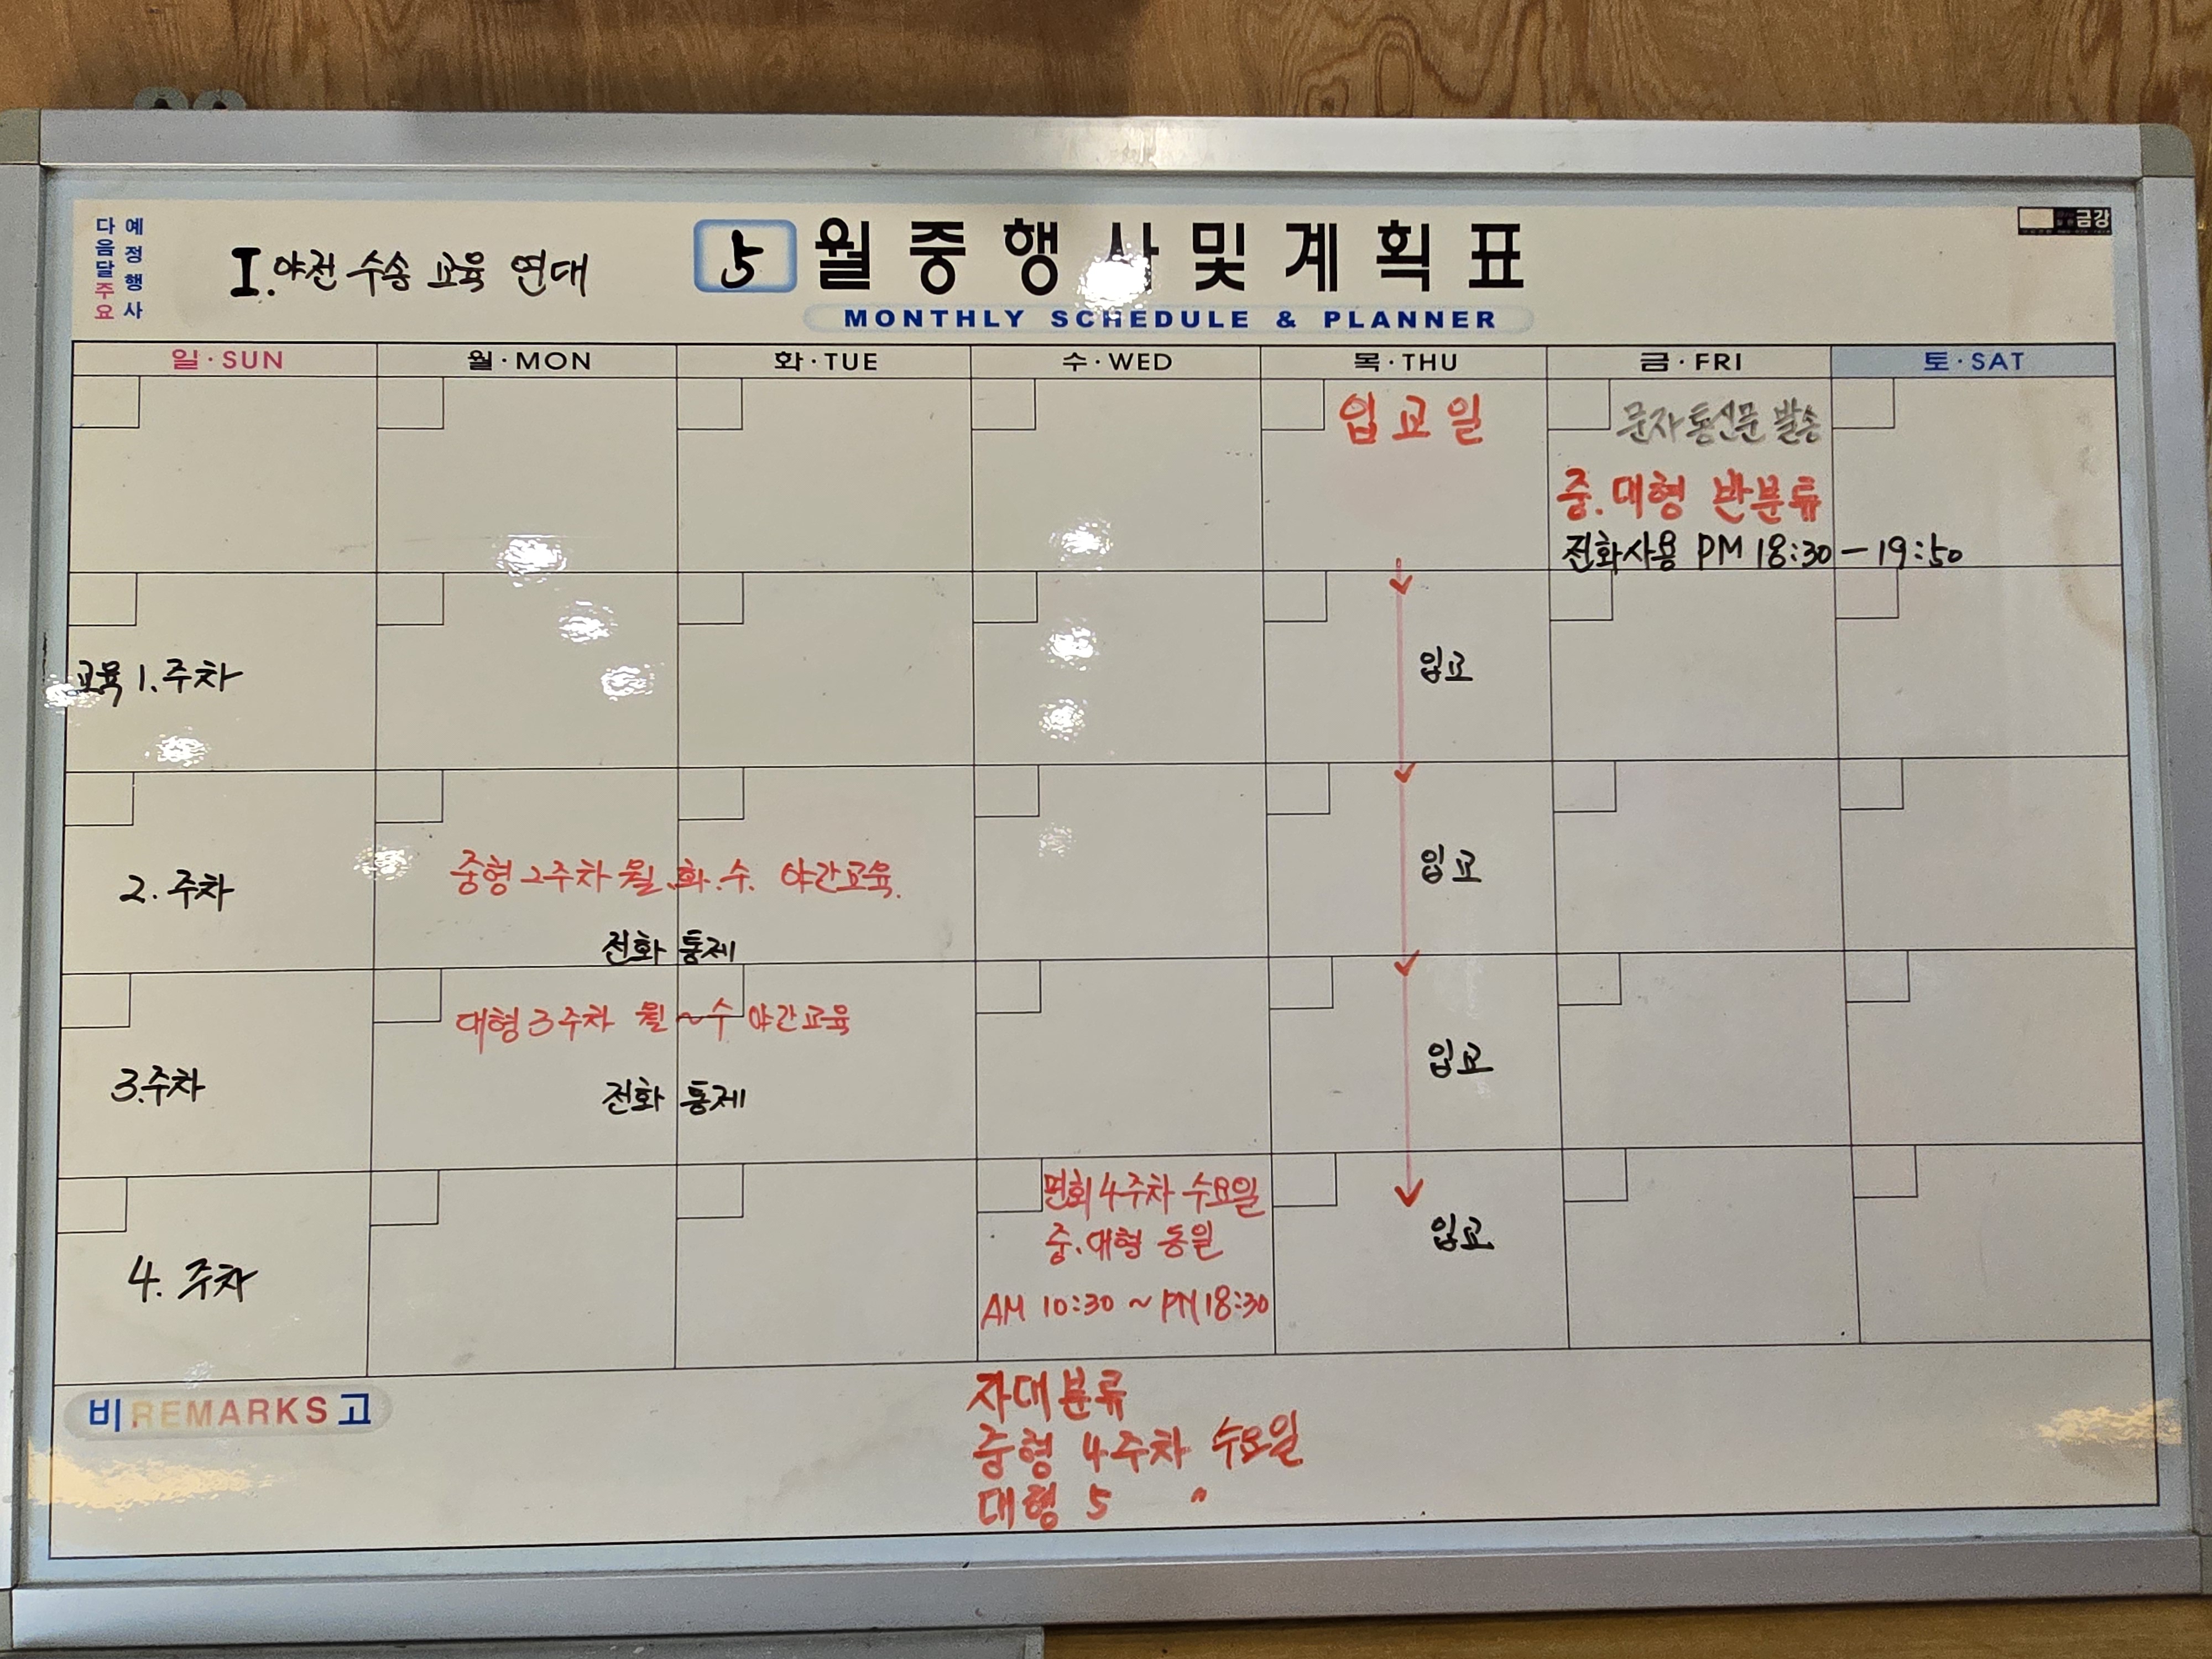 다음달주요
예정행사
I. 야전 수송 교육 연대
5 월중행사및계획표
MONTHLY SCHEDULE & PLANNER
금강
일·SUN 월·MON 화·TUE 수·WED 목·THU 금·FRI 토·SAT
입교일
문자통신문 발송
중.대형 반분류
전화사용 PM 18:30 - 19:50
교육 1.주차
입교
2.주차
중형 2주차 월.화.수. 야간교육.
전화 통제
입교
3.주차
대형 3주차 월~수 야간교육
전화 통제
입교
4. 주차
면회 4주차 수요일
중.대형 동일
AM 10:30 ~ PM 18:30
입교
비 REMARKS 고
자대분류
중형 4주차 수요일
대형 5 〃